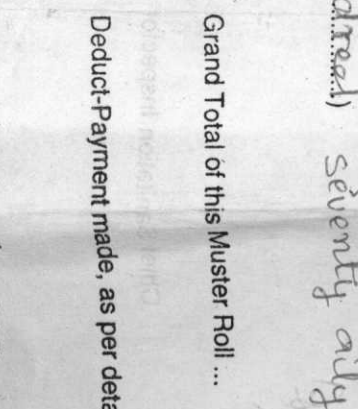 seventy
Grand Total of this Muster Roll ...
Deduct-Payment made, as per